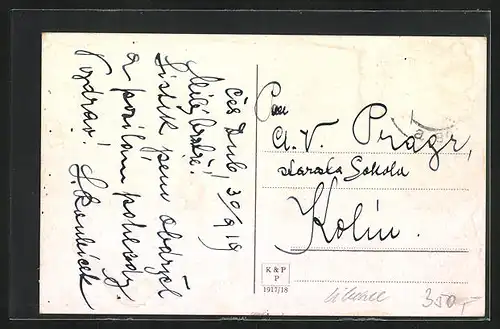 Čes Dub, 30/9 19
Milý bratře!
Lístek jsem obdržel
a posílám pohledy.
Pozdrav!
Pan
A. V. Pragr,
starosta Sokola
Kolín.
K & P
P
1917/18
350,-